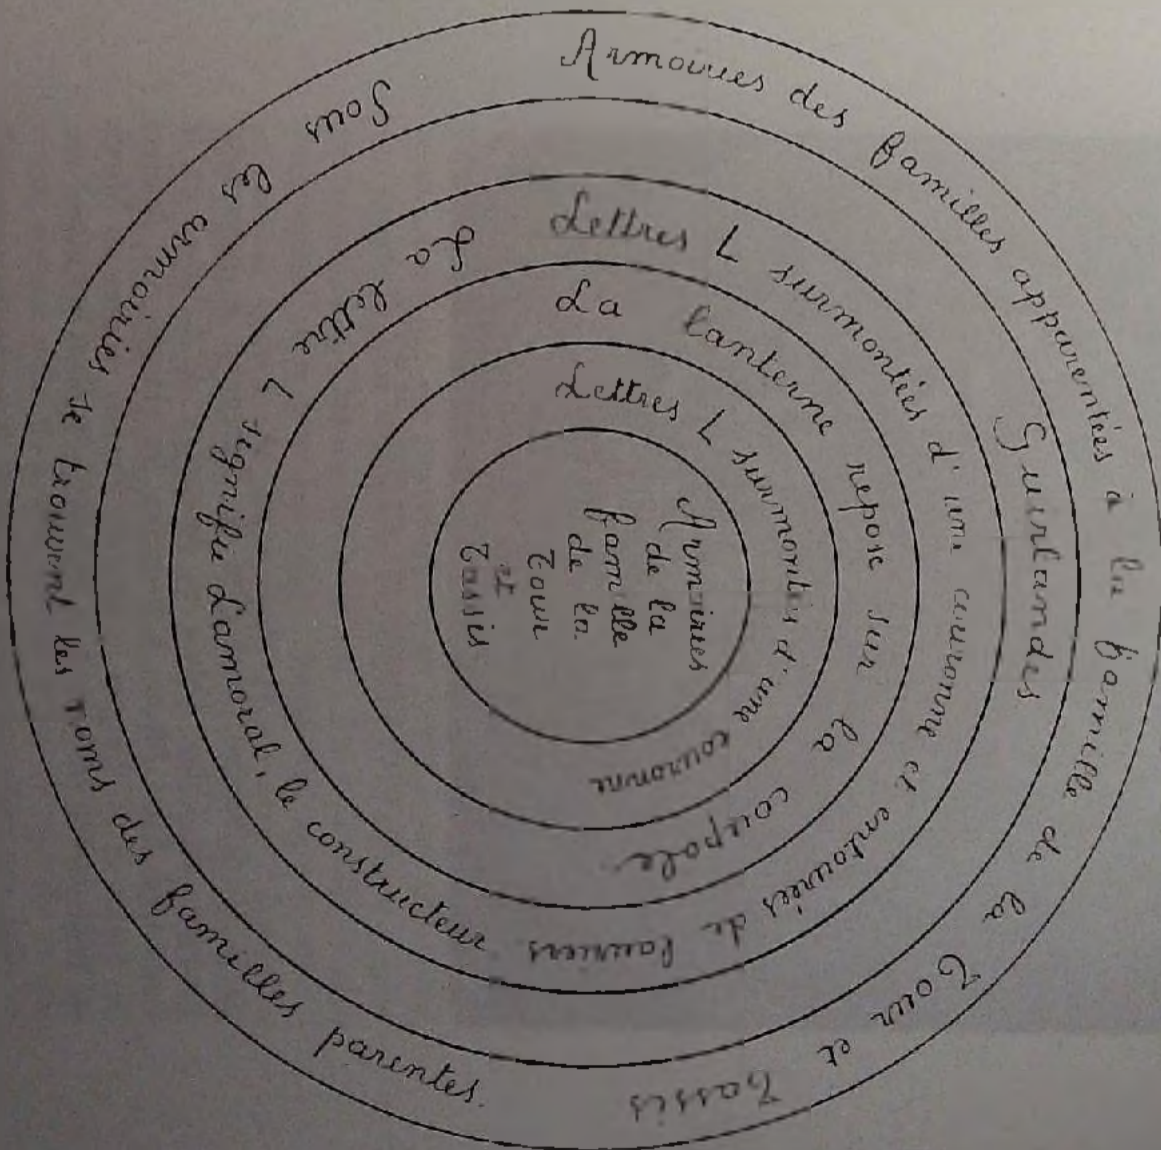 Armoiries des familles apparentées à la famille de la Tour et Tassis
Sous les armoiries se trouvent les noms des familles parentes.
Guirlandes
Lettres L surmontées d'une couronne et entourées de lauriers.
La lettre L signifie Lamoral, le constructeur
La lanterne repose sur la coupole.
Lettres L surmontées d'une couronne
Armoiries
de la
famille
de la
Tour
et
Tassis